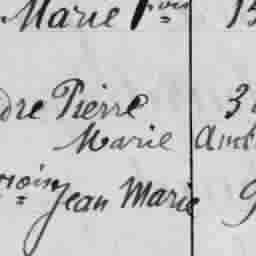 Marie Fois 15
dre Pierre 3
Marie Amb
çois Jean Marie 9